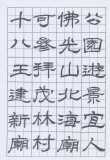 公園遊景人
佛光山北海廟
可參拜茂林村
十八王建新廟